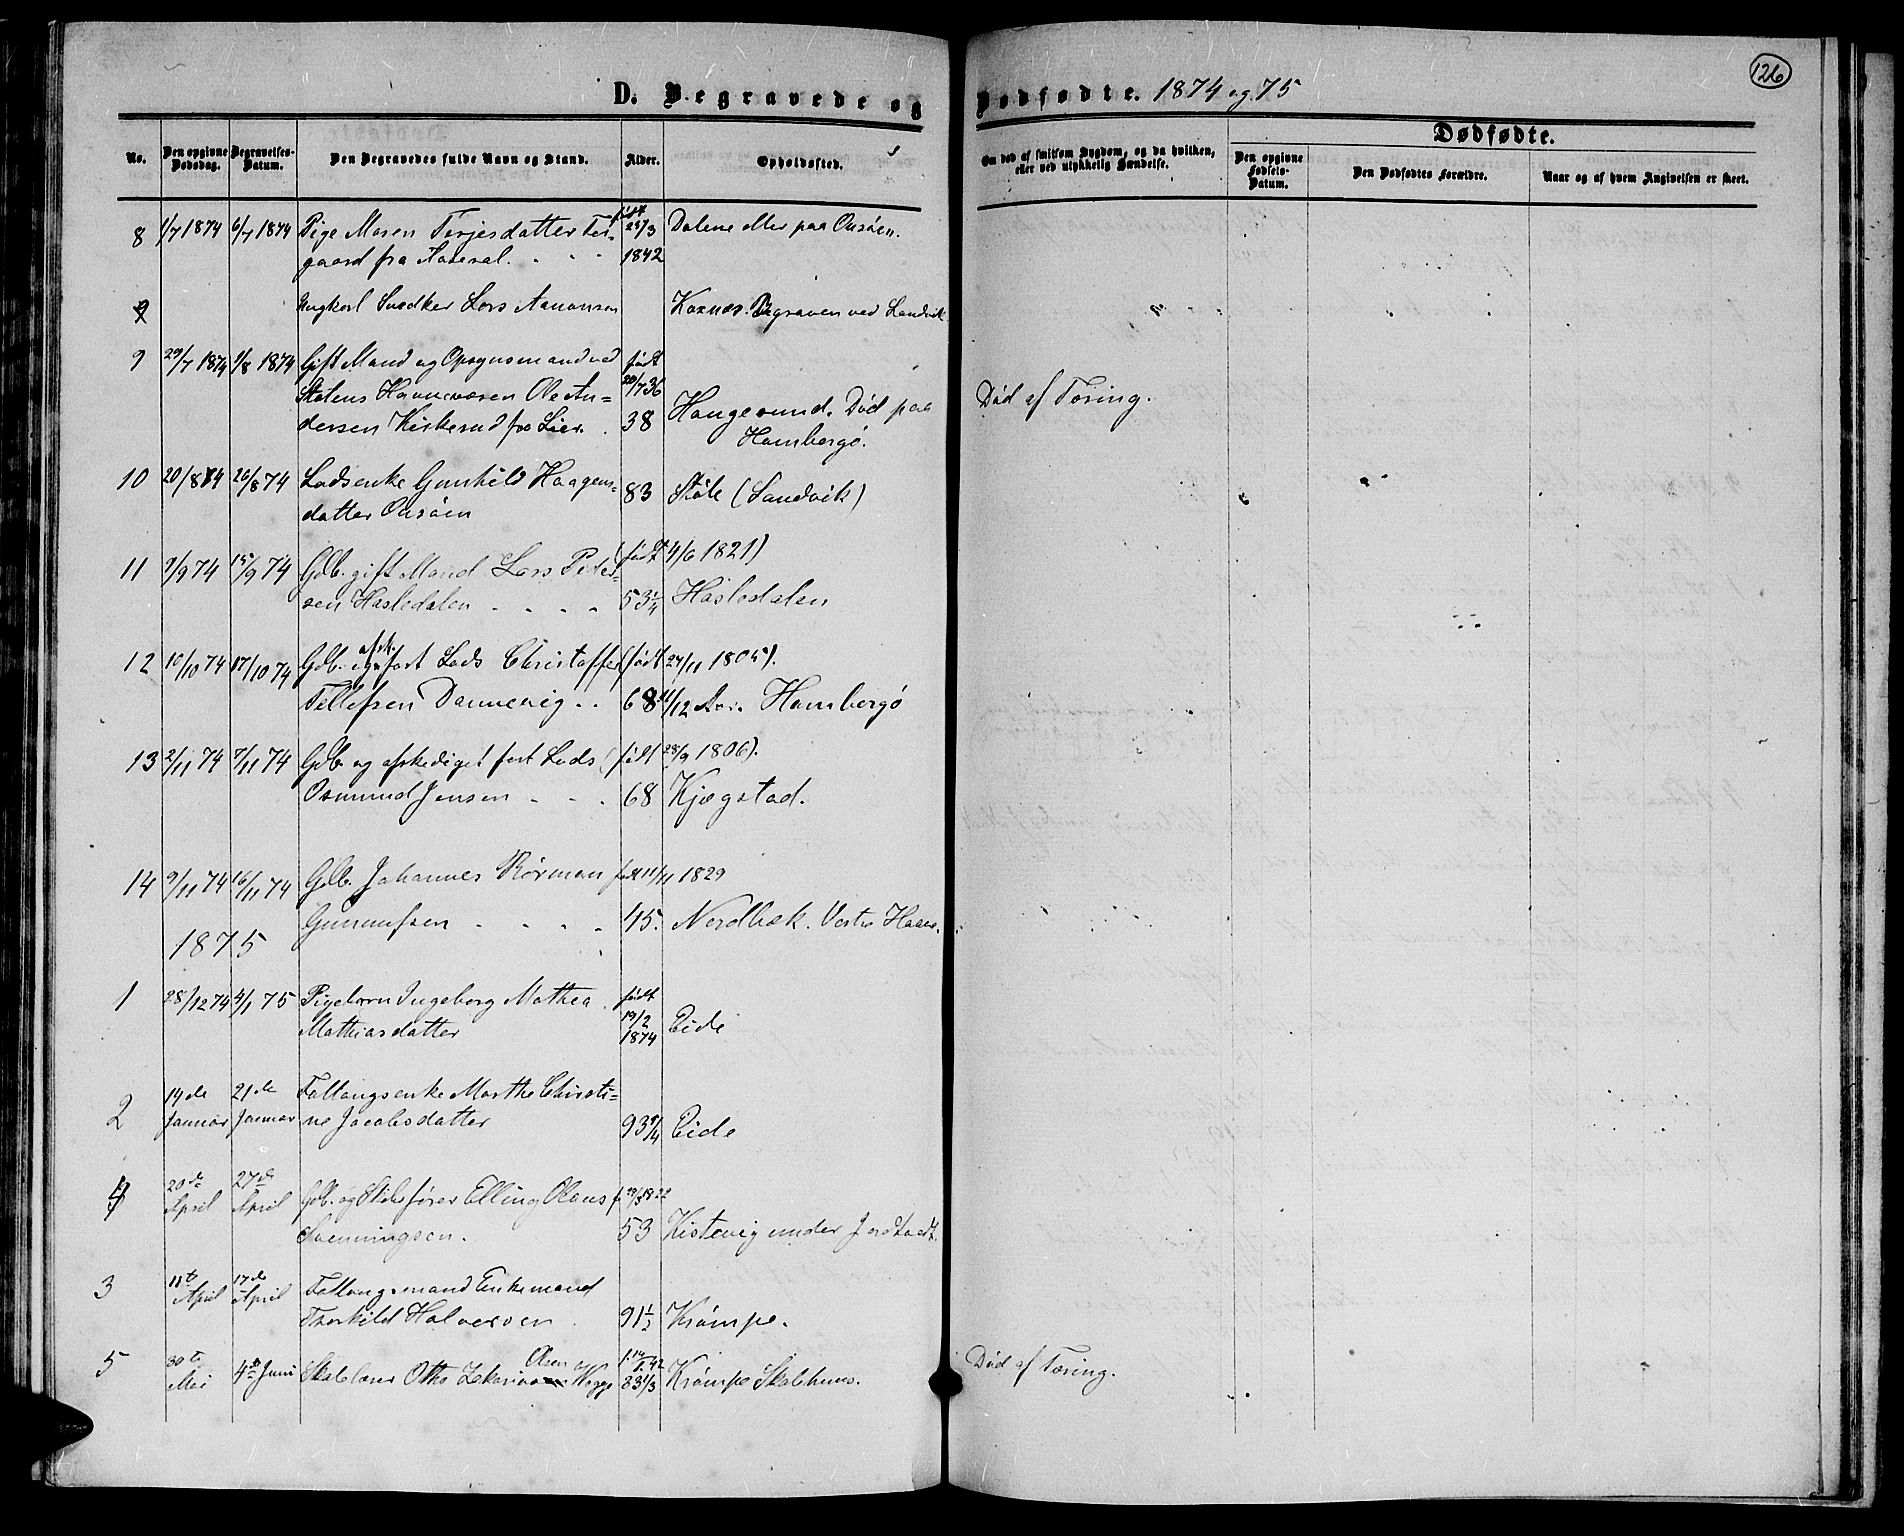 126
D. Begravede og Dødfødte. 1874 og 75
No.
Den opgivne Dødsdag.
Begravelses-Datum.
Den Begravedes fulde Navn og Stand.
Alder.
Opholdssted.
Om død af smitsom Sygdom, og da hvilken, eller ved ulykkelig Hændelse.
Dødfødte.
Den opgivne Fødsels-Datum.
Den Dødfødtes Forældre.
Naar og af hvem Angivelsen er skeet.
8 1/7 1874 6/7 1874 Pige Maren Terjesdatter født 25/3 Dalene eller paa Omsøen.
gaard fra Aaseral. 1842
9 Ungkarl Snedker Lars Aanonsen Kaxnæs. Begraven ved Landvik
9 29/7 1874 1/8 1874 Gift Mand og Opsynsmand ved født
Statens Havnevæsen Ole An= 20/7 36
dersen Kirkerud fra Lier. 38 Haugesund. Død paa Død af Tæring.
Hambergø.
10 20/8 74 26/8 74 Lodsenke Gunhild Haagens= 83 Støle (Sandvik)
datter Omsøen
11 9/9 74 15/9 74 Gdb. gift Mand Lars Peder= (født 4/6 1821)
sen Hasledalen 53 1/4 Hasledalen
12 10/10 74 17/10 74 Gdb. og afsk. fast Lods Christoffer (født 27/11 1805).
Tellefsen Dannevig 68 11/12 Aar. Hambergø
13 2/11 74 7/11 74 Gdb. og afskediget fast Lods (født 28/9 1806).
Osmund Jensen 68 Kjægstad.
14 9/11 74 16/11 74 Gdb. Johannes Rørman født 11/11 1829
Gunnufsen 45. Nordbæk. Vestre
1875
1 28/12 74 4/1 75 Pigebarn Ingeborg Mathea født
Mathiasdatter 19/2 1874 Eide
2 14de Januar 21de Januar Fattigsenke Marthe Christi=
ne Jacobsdatter 93 3/4 Eide
4 20de April 27de April Gdb. og Skibsfører Elling Olaus f. 29/3 1822
Svenningsen. 53 Kistevig under
3 11te April 17de April Enkemand
Thorkild Halvorsen 91 1/2 Krømpe.
5 30te Mai 4de Juni Skolelærer Otto Olsen Hegge f. 14/1 42 Krømpe Skolehuus. Død af Tæring.